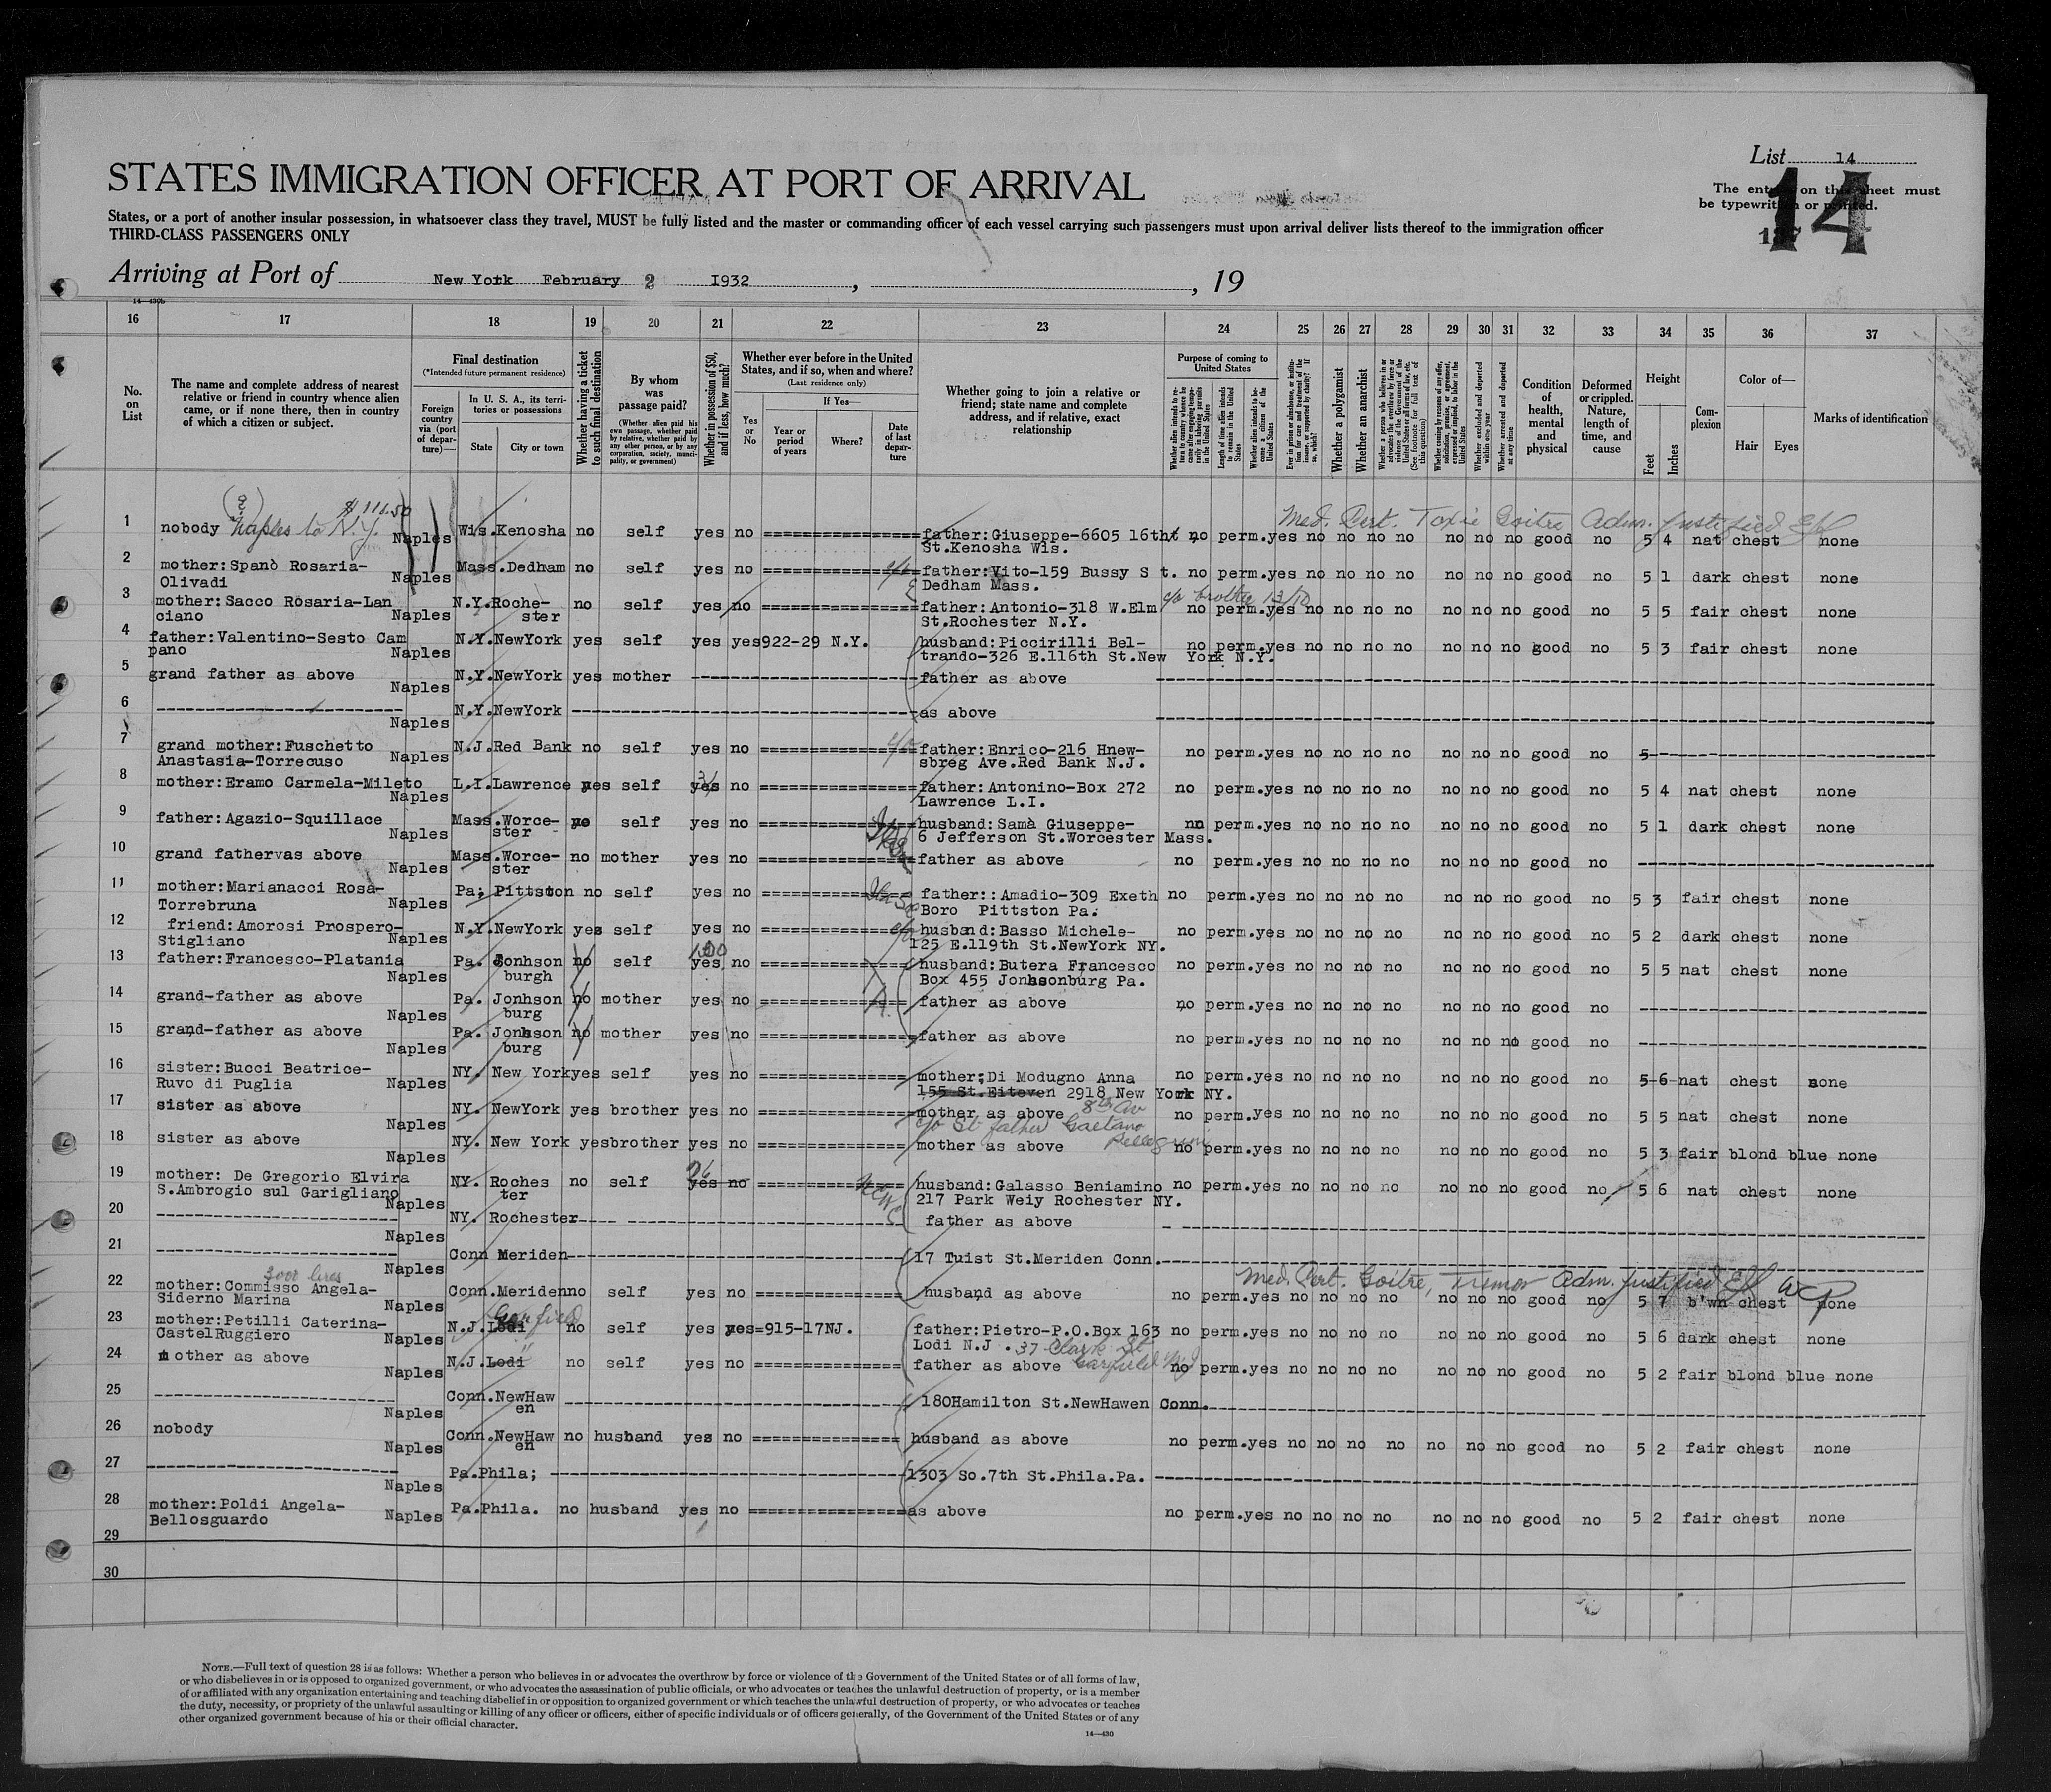 List 14
STATES IMMIGRATION OFFICER AT PORT OF ARRIVAL
The entries on this sheet must
be typewritten or printed.
14
States, or a port of another insular possession, in whatsoever class they travel, MUST be fully listed and the master or commanding officer of each vessel carrying such passengers must upon arrival deliver lists thereof to the immigration officer
THIRD-CLASS PASSENGERS ONLY
Arriving at Port of New York February 2 1932, , 19
14—430b
16 17 18 19 20 21 22 23 24 25 26 27 28 29 30 31 32 33 34 35 36 37
No. on List
The name and complete address of nearest relative or friend in country whence alien came, or if none there, then in country of which a citizen or subject.
Final destination
(*Intended future permanent residence)
Foreign country via (port of departure)—
In U. S. A., its territories or possessions
State
City or town
Whether having a ticket to such final destination
By whom was passage paid?
(Whether alien paid his own passage, whether paid by relative, whether paid by any other person, or by any corporation, society, municipality, or government)
Whether in possession of $50, and if less, how much?
Whether ever before in the United States, and if so, when and where?
(Last residence only)
Yes or No
If Yes—
Year or period of years
Where?
Date of last departure
Whether going to join a relative or friend; state name and complete address, and if relative, exact relationship
Purpose of coming to United States
Whether alien intends to return to country whence he came after engaging temporarily in laboring pursuits in the United States
Length of time alien intends to remain in the United States
Whether alien intends to become a citizen of the United States
Ever in prison or almshouse, or institution for care and treatment of the insane, or supported by charity? If so, which?
Whether a polygamist
Whether an anarchist
Whether a person who believes in or advocates the overthrow by force or violence of the Government of the United States or all forms of law, etc. (See footnote for full text of this question)
Whether coming by reason of any offer, solicitation, promise, or agreement, expressed or implied, to labor in the United States
Whether excluded and deported within one year
Whether arrested and deported at any time
Condition of health, mental and physical
Deformed or crippled. Nature, length of time, and cause
Height
Feet
Inches
Complexion
Color of—
Hair
Eyes
Marks of identification
$ 111.50
Med. Cert. Toxic Goitre Adm. Justified
1 nobody Naples to N.Y. Naples Wis. Kenosha no self yes no ================ father:Giuseppe-6605 16th no perm.yes no no no no no no no good no 5 4 nat chest none
St.Kenosha Wis.
2 mother:Spanò Rosaria- Naples Mass.Dedham no self yes no ================ father:Vito-159 Bussy S t. no perm.yes no no no no no no no good no 5 1 dark chest none
Olivadi Dedham Mass.
c/o brother
3 mother:Sacco Rosaria-Lan Naples N.Y.Roche- no self yes no ================ father:Antonio-318 W.Elm no perm.yes no no no no no no no good no 5 5 fair chest none
ciano ster St.Rochester N.Y.
4 father:Valentino-Sesto Cam Naples N.Y.NewYork yes self yes yes922-29 N.Y. husband:Piccirilli Bel- no perm.yes no no no no no no no good no 5 3 fair chest none
pano trando-326 E.116th St.New York N.Y.
5 grand father as above Naples N.Y.NewYork yes mother ---------------- father as above ----------------
6 ---------------- Naples N.Y.NewYork ---------------- as above ----------------
7 grand mother:Fuschetto Naples N.J.Red Bank no self yes no ================ father:Enrico-216 Hnew- no perm.yes no no no no no no no good no 5----------------
Anastasia-Torrecuso sbreg Ave.Red Bank N.J.
8 mother:Eramo Carmela-Mileto Naples L.I.Lawrence yes self yes no ================ father:Antonino-Box 272 no perm.yes no no no no no no no good no 5 4 nat chest none
Lawrence L.I.
9 father:Agazio-Squillace Naples Mass.Worce- self yes no ================ husband:Samà Giuseppe- no perm.yes no no no no no no no good no 5 1 dark chest none
ster 6 Jefferson St.Worcester Mass.
10 grand fathervas above Naples Mass.Worce- no mother yes no ================ father as above no perm.yes no no no no no no no good no ----------------
ster
11 mother:Marianacci Rosa- Naples Pa; Pittston no self yes no ================ father::Amadio-309 Exeth no perm.yes no no no no no no no good no 5 3 fair chest none
Torrebruna Boro Pittston Pa.
12 friend:Amorosi Prospero- Naples N.Y.NewYork yes self yes no ================ husband:Basso Michele- no perm.yes no no no no no no no good no 5 2 dark chest none
Stigliano 125 E.119th St.NewYork NY.
100
13 father:Francesco-Platania Naples Pa. Jonhson no self yes no ================ husband:Butera Francesco no perm.yes no no no no no no no good no 5 5 nat chest none
burgh Box 455 Jonhsonburg Pa.
14 grand-father as above Naples Pa. Jonhson no mother yes no ================ father as above no perm.yes no no no no no no no good no ----------------
burg
15 grand-father as above Naples Pa. Jonhson no mother yes no ================ father as above no perm.yes no no no no no no no good no ----------------
burg
16 sister:Bucci Beatrice- Naples NY. New Yorkyes self yes no ================ mother:Di Modugno Anna no perm.yes no no no no no no no good no 5-6-nat chest none
Ruvo di Puglia 155 St.Eiteven 2918 New York NY.
8th Av
17 sister as above Naples NY. NewYork yes brother yes no ================ mother as above no perm.yes no no no no no no no good no 5 5 nat chest none
c/o St father Gaetano
Pellegrini
18 sister as above Naples NY. New York yesbrother yes no ================ mother as above no perm.yes no no no no no no no good no 5 3 fair blond blue none
19 mother: De Gregorio Elvira Naples NY. Roches no self yes no ================ husband:Galasso Beniamino no perm.yes no no no no no no no good no 5 6 nat chest none
S.Ambrogio sul Garigliano ter 217 Park Weiy Rochester NY.
20 ---------------- Naples NY. Rochester---- ---------------- father as above ----------------
21 ---------------- Naples Conn Meriden---------------- 17 Tuist St.Meriden Conn.----------------
3000 lires
Med. Cert. Goitre, Tremor Adm. Justified
22 mother:Commisso Angela- Naples Conn.Meridenno self yes no ================ husband as above no perm.yes no no no no no no no good no 5 7 b'wn chest none
Siderno Marina
Garfield
23 mother:Petilli Caterina- Naples N.J.Lodi no self yes yes=915-17NJ. father:Pietro-P.O.Box 163 no perm.yes no no no no no no no good no 5 6 dark chest none
CastelRuggiero Lodi N.J. 37 Clark St
Garfield NJ
24 mother as above Naples N.J.Lodi no self yes no ================ father as above no perm.yes no no no no no no no good no 5 2 fair blond blue none
25 ---------------- Naples Conn.NewHaw ---------------- 180Hamilton St.NewHawen Conn.----------------
en
26 nobody Naples Conn.NewHaw no husband yes no ================ husband as above no perm.yes no no no no no no no good no 5 2 fair chest none
en
27 ---------------- Naples Pa.Phila; ---------------- 1303 So.7th St.Phila.Pa. ----------------
28 mother:Poldi Angela- Naples Pa.Phila. no husband yes no ================ as above no perm.yes no no no no no no no good no 5 2 fair chest none
Bellosguardo
29
30
NOTE.—Full text of question 28 is as follows: Whether a person who believes in or advocates the overthrow by force or violence of the Government of the United States or of all forms of law,
or who disbelieves in or is opposed to organized government, or who advocates the assassination of public officials, or who advocates or teaches the unlawful destruction of property, or is a member
of or affiliated with any organization entertaining and teaching disbelief in or opposition to organized government or which teaches the unlawful destruction of property, or who advocates or teaches
the duty, necessity, or propriety of the unlawful assaulting or killing of any officer or officers, either of specific individuals or of officers generally, of the Government of the United States or of any
other organized government because of his or their official character.
14—430